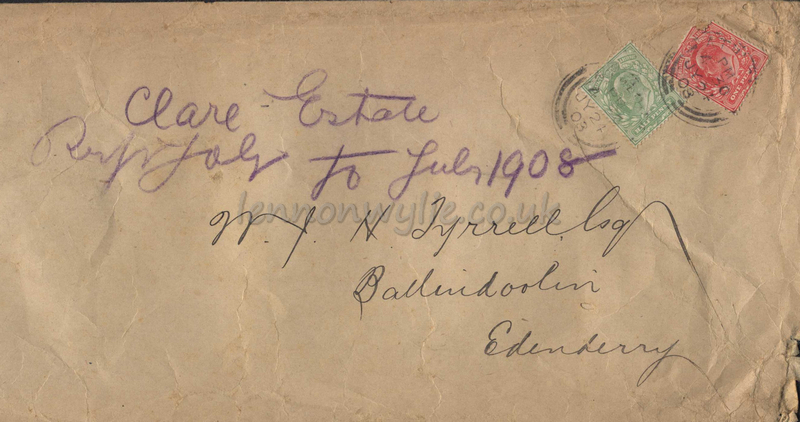 Clare Estate
July to July 1908
W. J. H. Tyrrell, Esq
Ballindoolin
Edenderry
lennonwylie.co.uk
JY 24
08
ONE PENNY